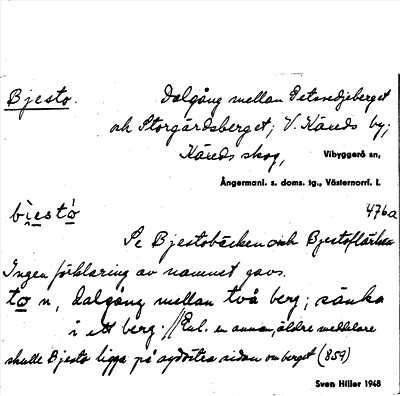 Bjesto. Dalgång mellan Getsvedjeberget
och Storgårdsberget; V. Käxeds by;
Käxeds skog, Vibyggerå sn,
Ångermanl. s. doms. tg., Västernorrl. l.
476a
Se Bjestobäcken och Bjestoflärken
Ingen förklaring av namnet gavs.
to n, dalgång mellan två berg; sänka
i ett berg. // Enl. en annan, äldre meddelare
skulle Bjesto ligga på sydöstra sidan om berget (859)
Sven Hiller 1948